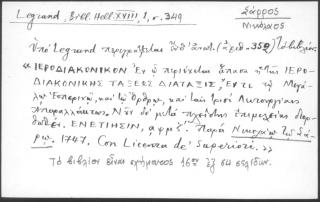 Legrand, Bibl. Hell. XVIII, 1, σ. 349
Σάρρος
Νικόλαος
Ὑπὸ Legrand περιγράφεται ὑπ' ἀριθ. 352 τὸ βιβλίον
« ΙΕΡΟΔΙΑΚΟΝΙΚΟΝ Ἐν ᾧ περιέχεται ἅπασα ἡ τῆς ΙΕΡΟ-
ΔΙΑΚΟΝΙΚΗΣ ΤΑΞΕΩΣ ΔΙΑΤΑΞΙΣ, ἔν τε τῷ Μεγά-
λῳ Ἑσπερινῷ, καὶ τῷ Ὄρθρῳ, καὶ ταῖς τρισὶ Λειτουργίαις
ἀπαραλλάκτως. Νῦν δὲ μετὰ πλείστης ἐπιμελείας διορ-
θωθέν. ΕΝΕΤΙΗΣΙΝ, αψμζ'. Παρὰ Νικολάῳ τῷ Σά-
ρῳ. 1747. Con Licenza de' Superiori. »
Τὸ βιβλίον εἶναι σχήματος 16ον ἐξ 64 σελίδων.